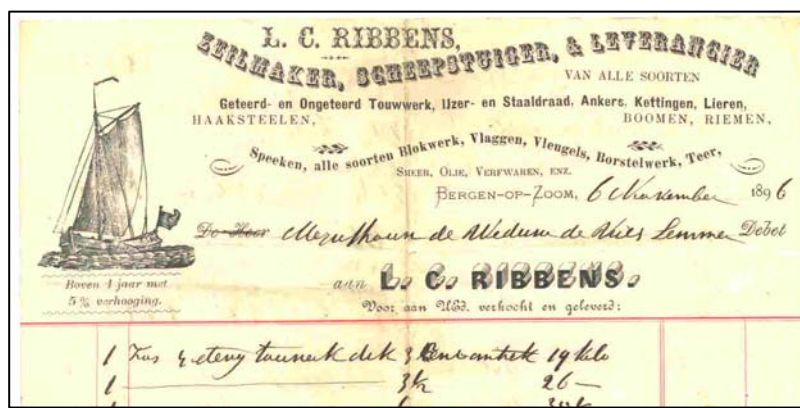 L. C. RIBBENS,
ZEILMAKER, SCHEEPSTUIGER, & LEVERANCIER
VAN ALLE SOORTEN
Geteerd- en Ongeteerd Touwwerk, IJzer- en Staaldraad, Ankers, Kettingen, Lieren,
HAAKSTEELEN, BOOMEN, RIEMEN,
Speeken, alle soorten Blokwerk, Vlaggen, Vleugels, Borstelwerk, Teer,
SMEER, OLIE, VERFWAREN, ENZ.
BERGEN-OP-ZOOM, 6 November 1896
De Heer de Weduwe de Lemmer Debet
aan L. C. RIBBENS.
Voor aan UEd. verkocht en geleverd:
Boven 1 jaar met
5 % verhooging.
1 touwerk dik 3 19 kilo
1 3½ 26 —
1